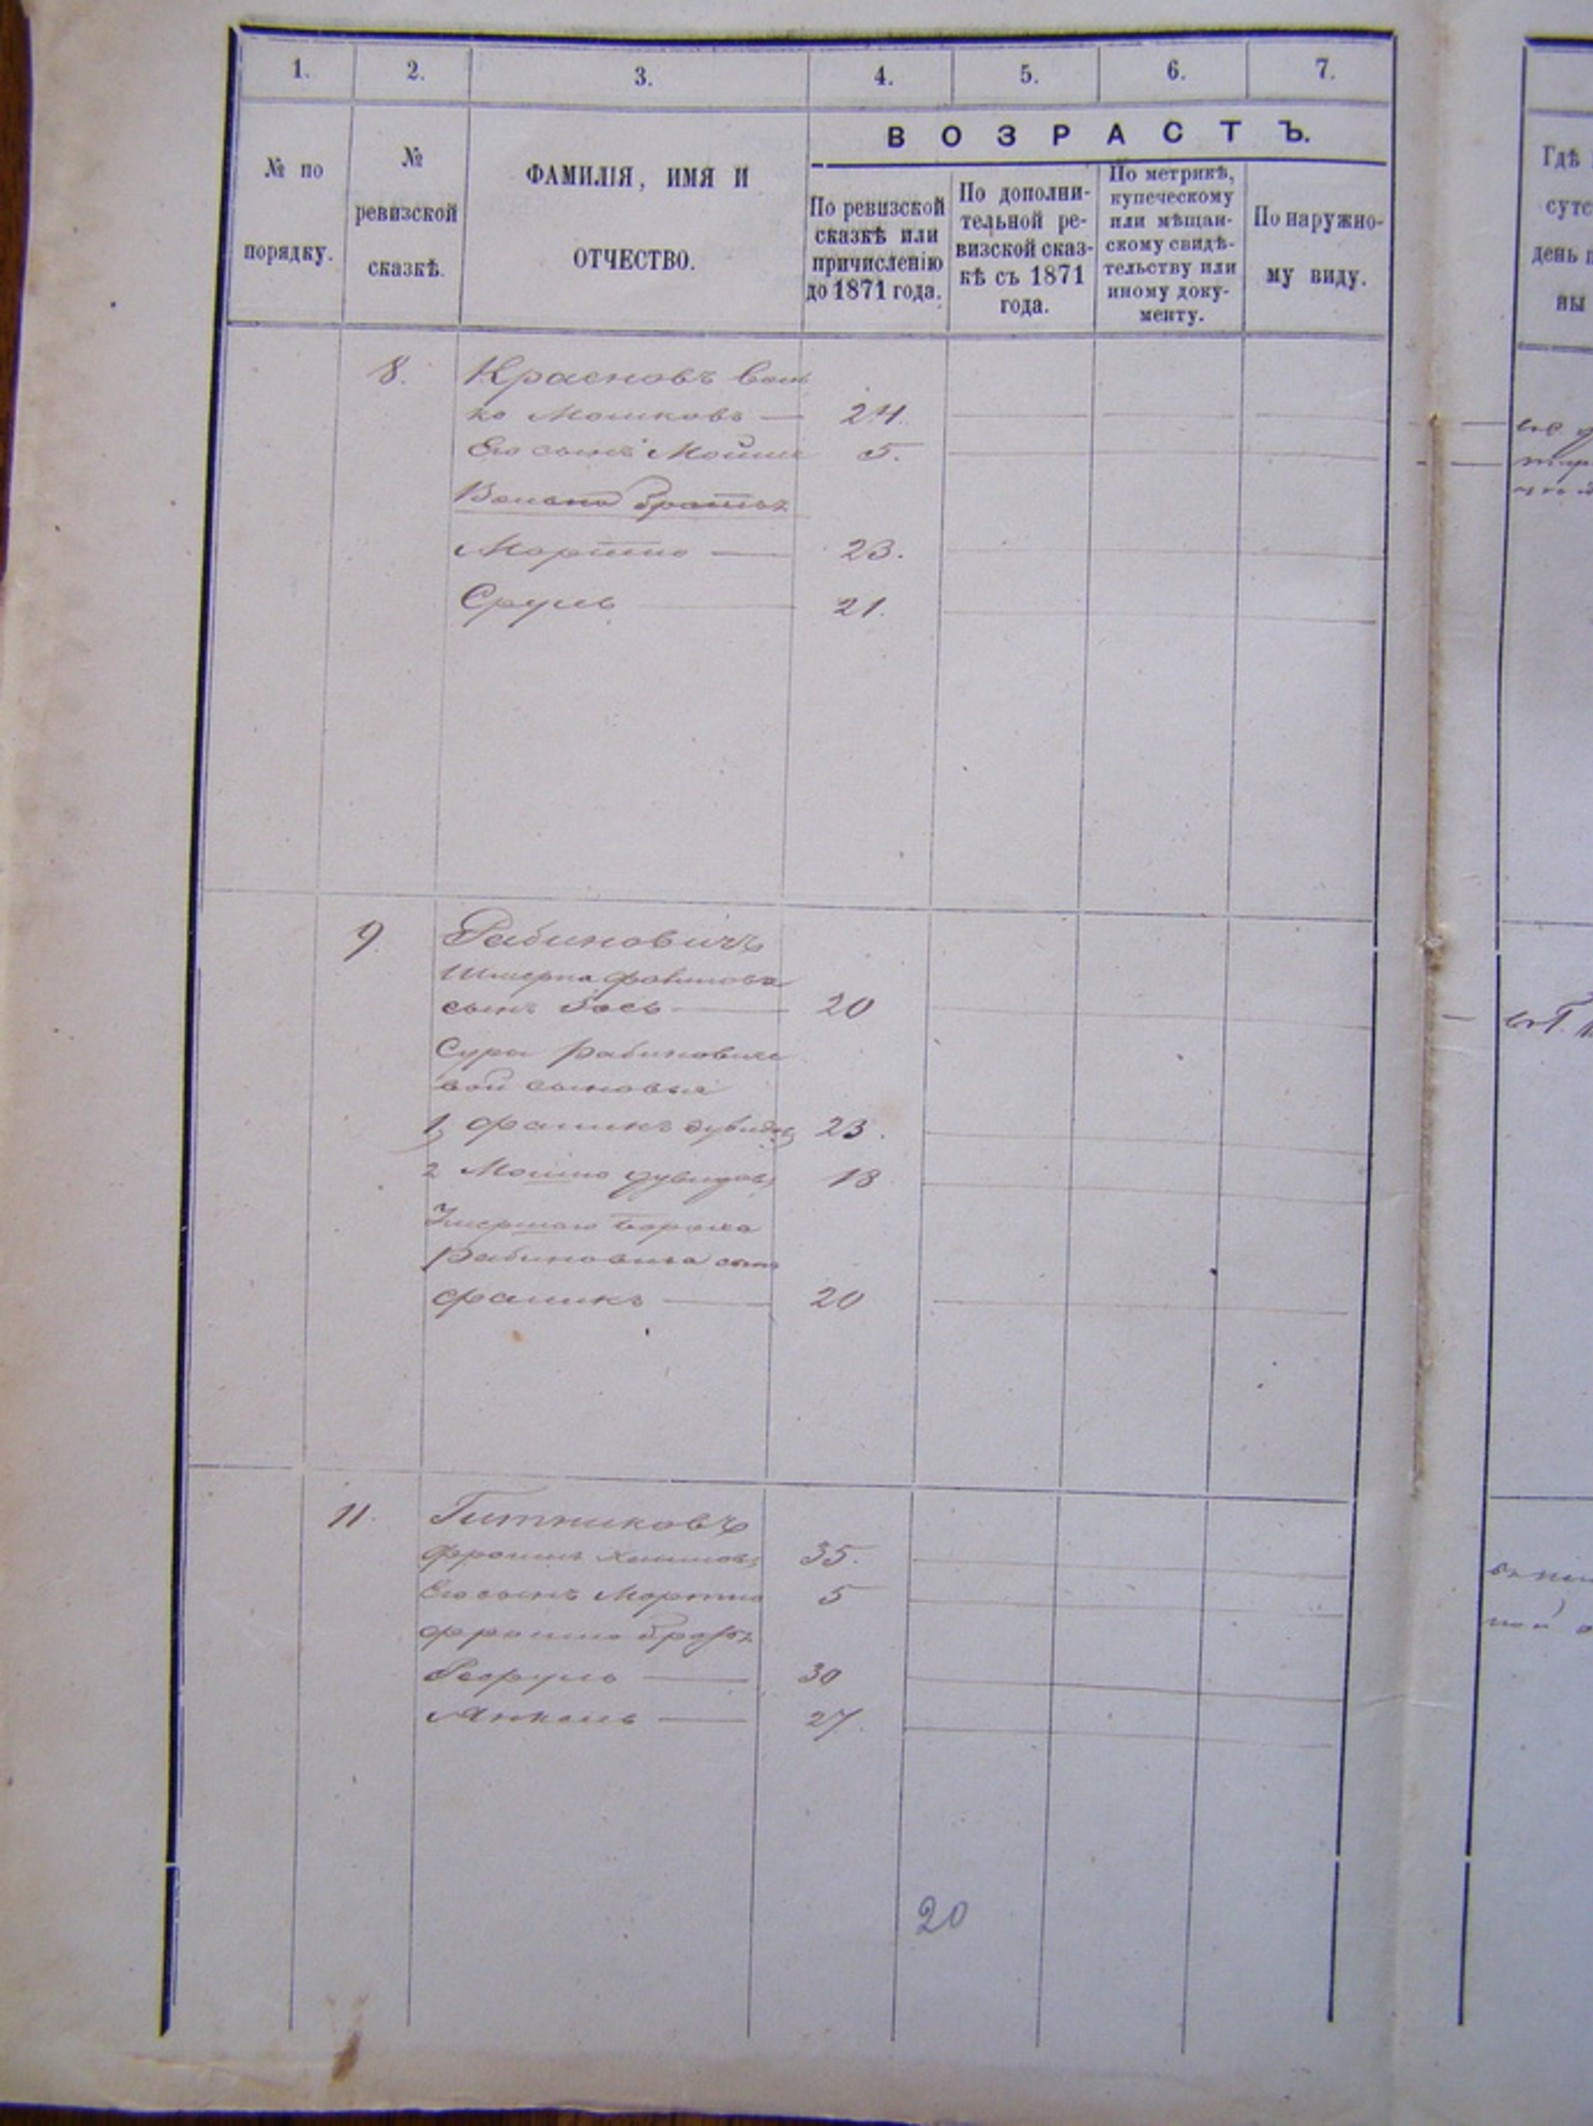 1. 2. 3. 4. 5. 6. 7.
№ по порядку.
№ ревизской сказкѣ.
ФАМИЛІЯ, ИМЯ И ОТЧЕСТВО.
ВОЗРАСТЪ.
По ревизской
сказкѣ или
причисленію
до 1871 года.
По дополни-
тельной ре-
визской сказ-
кѣ съ 1871
года.
По метрикѣ,
купеческому
или мѣщан-
скому свидѣ-
тельству или
иному доку-
менту.
По наружно-
му виду.
Гдѣ
сутс
день п
ны
8. Красновъ Вель
ко Мошковъ — 24.
Его сынъ Мойше 5.
Велька братья
Мортхо — 23.
Сруль — 21.
9. Рабиновичъ
Шмерка
сынъ Іось — 20
Суры Рабинович
вой сыновья
1, Фаликъ Дувидов, 23.
2 Мошко Дувидов, 18
Умершаго Бороха
Рабиновича сынъ
Фаликъ — 20
11. Гитниковъ
Фроимъ Хаимов, 35.
Его сынъ Мортхо 5
Фроима братъя
— 30
Янкель — 27.
20